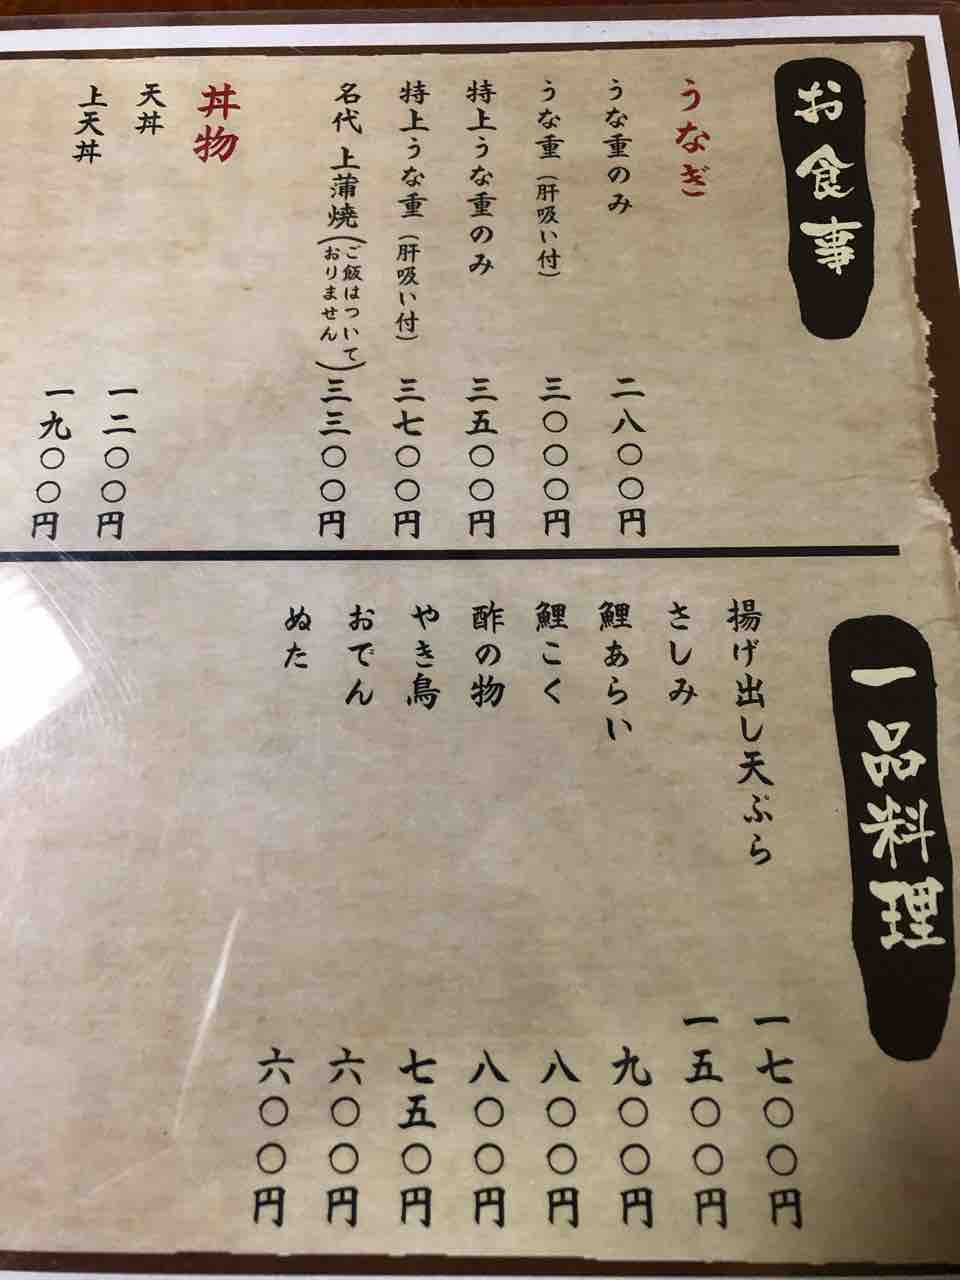 お食事
うなぎ
うな重のみ 二八〇〇円
うな重（肝吸い付） 三〇〇〇円
特上うな重のみ 三五〇〇円
特上うな重（肝吸い付） 三七〇〇円
名代 上蒲焼（ご飯はついておりません） 三三〇〇円
丼物
天丼 一二〇〇円
上天丼 一九〇〇円
一品料理
揚げ出し天ぷら 一七〇〇円
さしみ 一五〇〇円
鯉あらい 九〇〇円
鯉こく 八〇〇円
酢の物 八〇〇円
やき鳥 七五〇円
おでん 六〇〇円
ぬた 六〇〇円